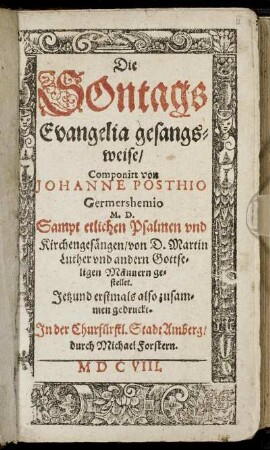 Die
Sontags
Evangelia gesangs-
weise/
Componirt von
JOHANNE POSTHIO
Germershemio
M. D.
Sampt etlichen Psalmen vnd
Kirchengesängen/von D. Martin
Luther vnd andern Gottse-
ligen Männern ge-
stellet.
Jetzund erstmals also zusam-
men gedruckt.
In der Churfürstl. Stadt Amberg/
durch Michael Forstern.
M D C VIII.